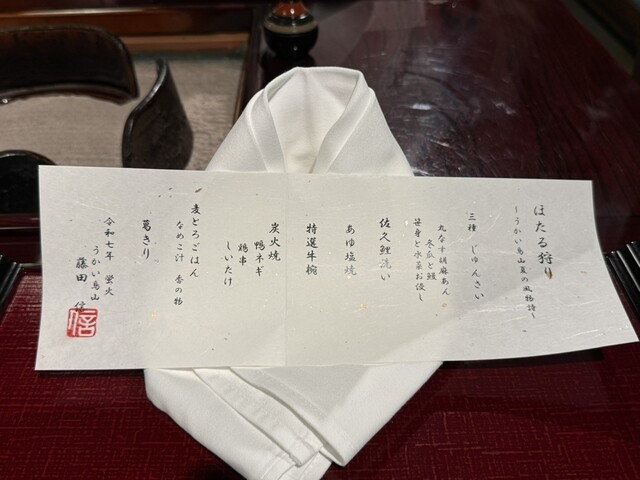 ほたる狩り
～うかい鳥山夏の風物詩～
三種　じゅんさい
丸なす胡麻あん
冬瓜と鰻
笹身と水菜お浸し
佐久鯉洗い
あゆ塩焼
特選牛椀
炭火焼
鴨ネギ
鶏串
しいたけ
麦とろごはん
なめこ汁　香の物
葛きり
令和七年　蛍火
うかい鳥山
藤田